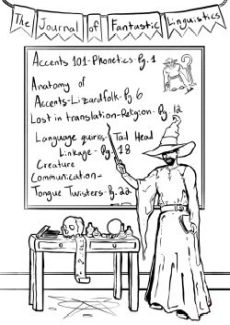 The Journal of Fantastic Linguistics
Accents 101-Phonetics Pg. 1
Anatomy of
Accents-Lizardfolk-Pg 6
Lost in translation-Religion-Pg 12
Language quirks-Tail Head
Linkage-Pg. 18
Creature
Communication-
Tongue Twisters-Pg. 22